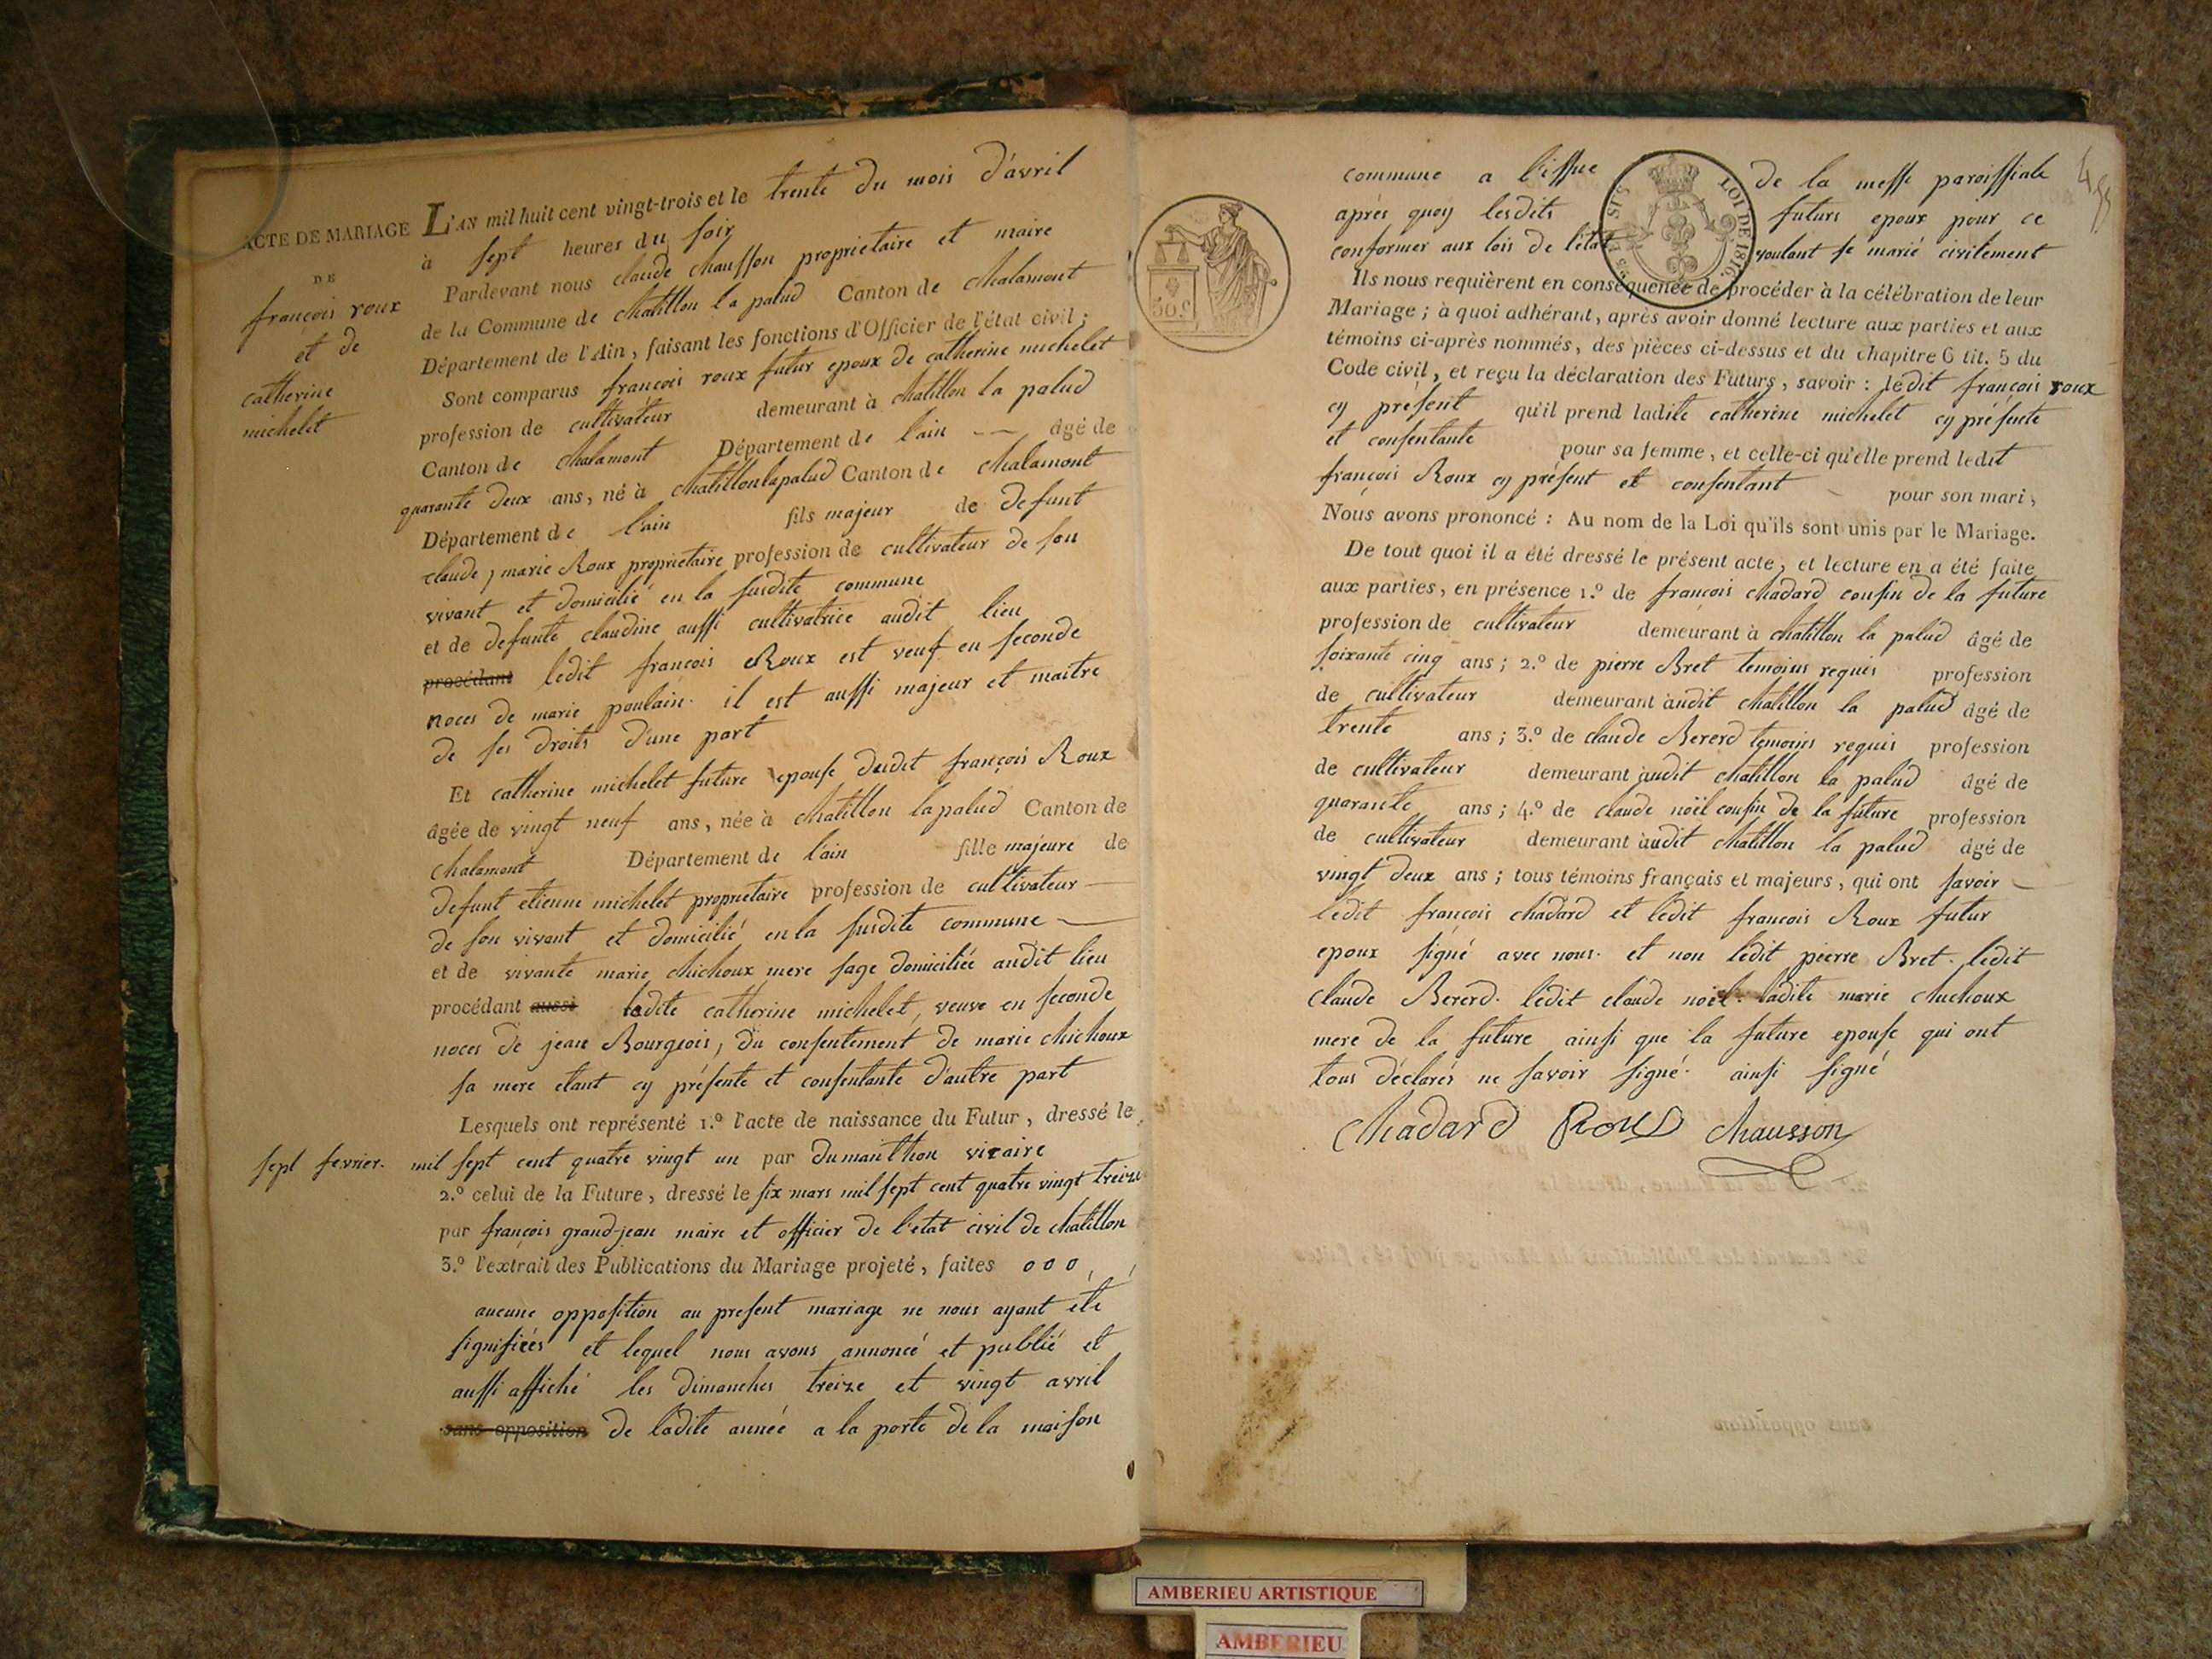 ACTE DE MARIAGE
DE
françois roux
et de
catherine
michelet
L'AN mil huit cent vingt-trois et le trente du mois d'avril
à sept heures du soir
Pardevant nous claude chausson proprietaire et maire
de la Commune de chatillon la palud Canton de chalamont
Département de l'Ain, faisant les fonctions d'Officier de l'état civil;
Sont comparus françois roux futur epoux de catherine michelet
profession de cultivateur demeurant à chatillon la palud
Canton de chalamont Département de l'ain -- âgé de
quarante deux ans, né à chatillonlapalud Canton de chalamont
Département de l'ain fils majeur de defunt
claude, marie Roux proprietaire profession de cultivateur de son
vivant et domicilié en la susdite commune
et de defunte claudine aussi cultivatrice audit lieu
procédant ledit françois Roux est veuf en seconde
noces de marie poulain. il est aussi majeur et maitre
de ses droits d'une part
Et catherine michelet future epouse dudit françois Roux
âgée de vingt neuf ans, née à chatillon lapalud Canton de
chalamont Département de l'ain fille majeure de
defunt etienne michelet proprietaire profession de cultivateur
de son vivant et domicilié en la susdite commune
et de vivante marie chichoux mere sage domiciliée audit lieu
procédant aussi ladite catherine michelet, veuve en seconde
noces de jean Bourgeois, du consentement de marie chichoux
sa mere etant cy présente et consentante d'autre part
Lesquels ont représenté 1.º l'acte de naissance du Futur, dressé le
sept fevrier. mil sept cent quatre vingt un par dumanthon vicaire
2.º celui de la Future, dressé le six mars mil sept cent quatre vingt treize
par françois grand-jean maire et officier de l'etat civil de chatillon
3.º l'extrait des Publications du Mariage projeté, faites o o o
aucune opposition au present mariage ne nous ayant été
signifiées et lequel nous avons annoncé et publié et
aussi affiché les dimanches treize et vingt avril
sans opposition de ladite année a la porte de la maison
50.c
LOI DE 1816.
commune a l'issue de la messe paroissiale
après quoy lesdits futurs epoux pour ce
conformer aux lois de l'état voulant se marié civilement
Ils nous requièrent en conséquence de procéder à la célébration de leur
Mariage; à quoi adhérant, après avoir donné lecture aux parties et aux
témoins ci-après nommés, des pièces ci-dessus et du chapitre 6 tit. 5 du
Code civil, et reçu la déclaration des Futurs, savoir: ledit françois roux
cy présent qu'il prend ladite catherine michelet cy présente
et consentante pour sa femme, et celle-ci qu'elle prend ledit
françois Roux cy présent et consentant pour son mari,
Nous avons prononcé: Au nom de la Loi qu'ils sont unis par le Mariage.
De tout quoi il a été dressé le présent acte, et lecture en a été faite
aux parties, en présence 1.º de françois chadard cousin de la future
profession de cultivateur demeurant à chatillon la palud âgé de
soixante cinq ans; 2.º de pierre Bret temoins requis profession
de cultivateur demeurant audit chatillon la palud âgé de
trente ans; 3.º de claude Bererd temoins requis profession
de cultivateur demeurant audit chatillon la palud âgé de
quarante ans; 4.º de claude noël cousin de la future profession
de cultivateur demeurant audit chatillon la palud âgé de
vingt deux ans; tous témoins français et majeurs, qui ont savoir
ledit françois chadard et ledit françois Roux futur
epoux signé avec nous. et non ledit pierre Bret. ledit
claude Bererd. ledit claude noël. ladite marie chuchoux
mere de la future ainsi que la future epouse qui ont
tous déclarés ne savoir signé. ainsi signé
Chadard Roux chausson
AMBERIEU ARTISTIQUE
AMBERIEU